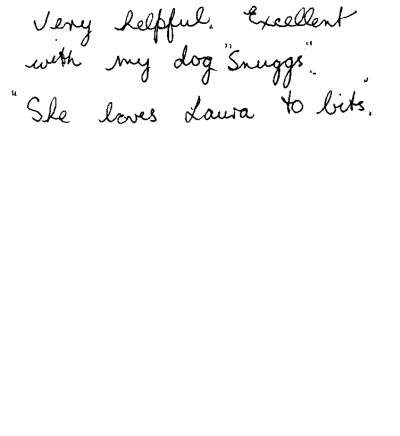 Very helpful. Excellent
with my dog "Snuggs".
"She loves Laura to bits".